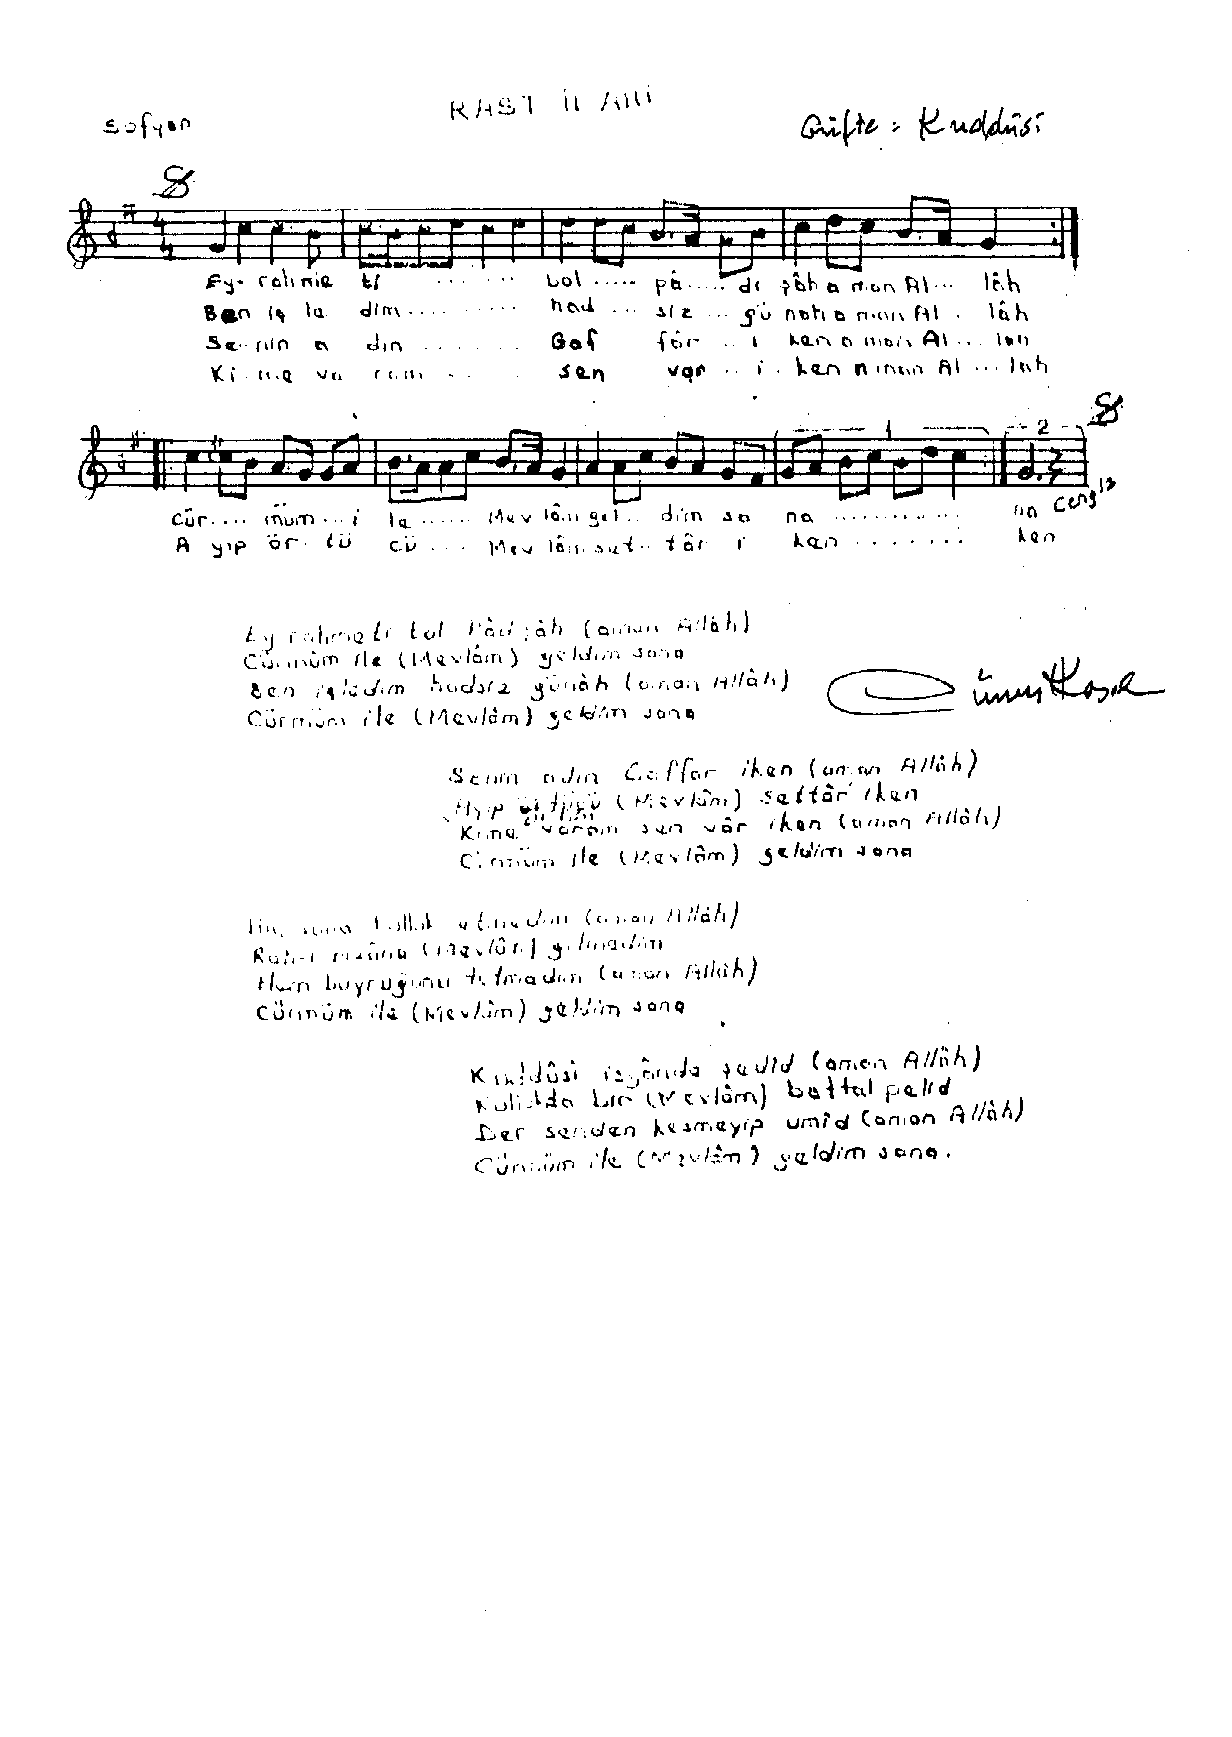 RAST İLAHİ
Sofyan
Güfte : Kuddûsi
Ey- rahme ti ........ bol ..... pâ..... di şâh aman Al... lâh
Ben iş le dim .......... had ... siz ... gü nah aman Al . lâh
Se-nin a dın ........ Gaf fâr .. i ken aman Al ... lah
Ki-me va ram ...... sen var .. i . ken aman Al ... lah
1 2
Cür.... müm .. i le ...... Mev lâm gel .. dim sa na ........... na Cengiz
A yıp ör- tü cü .... Mev lâm set .. târ i ken ........ ken
Ey rahmeti bol Pâdişâh (aman Allâh)
Cürmüm ile (Mevlâm) geldim sana
Ben işledim hadsiz günâh (aman Allâh)
Cürmüm ile (Mevlâm) geldim sana
Senin adın Gaffar iken (aman Allâh)
Ayıp örtücü (Mevlâm) settâr iken
Kime varam sen vâr iken (aman Allâh)
Cürmüm ile (Mevlâm) geldim sana
sana kulluk etmedim (aman Allâh)
Rah-ı rızâna (Mevlâm) gitmedim
Hem buyruğunu tutmadım (aman Allâh)
Cürmüm ile (Mevlâm) geldim sana
Kuddûsi isyânda şedid (aman Allâh)
Kullukta bir (Mevlâm) battal pelid
Der senden kesmeyip umîd (aman Allâh)
Cürmüm ile (Mevlâm) geldim sana.